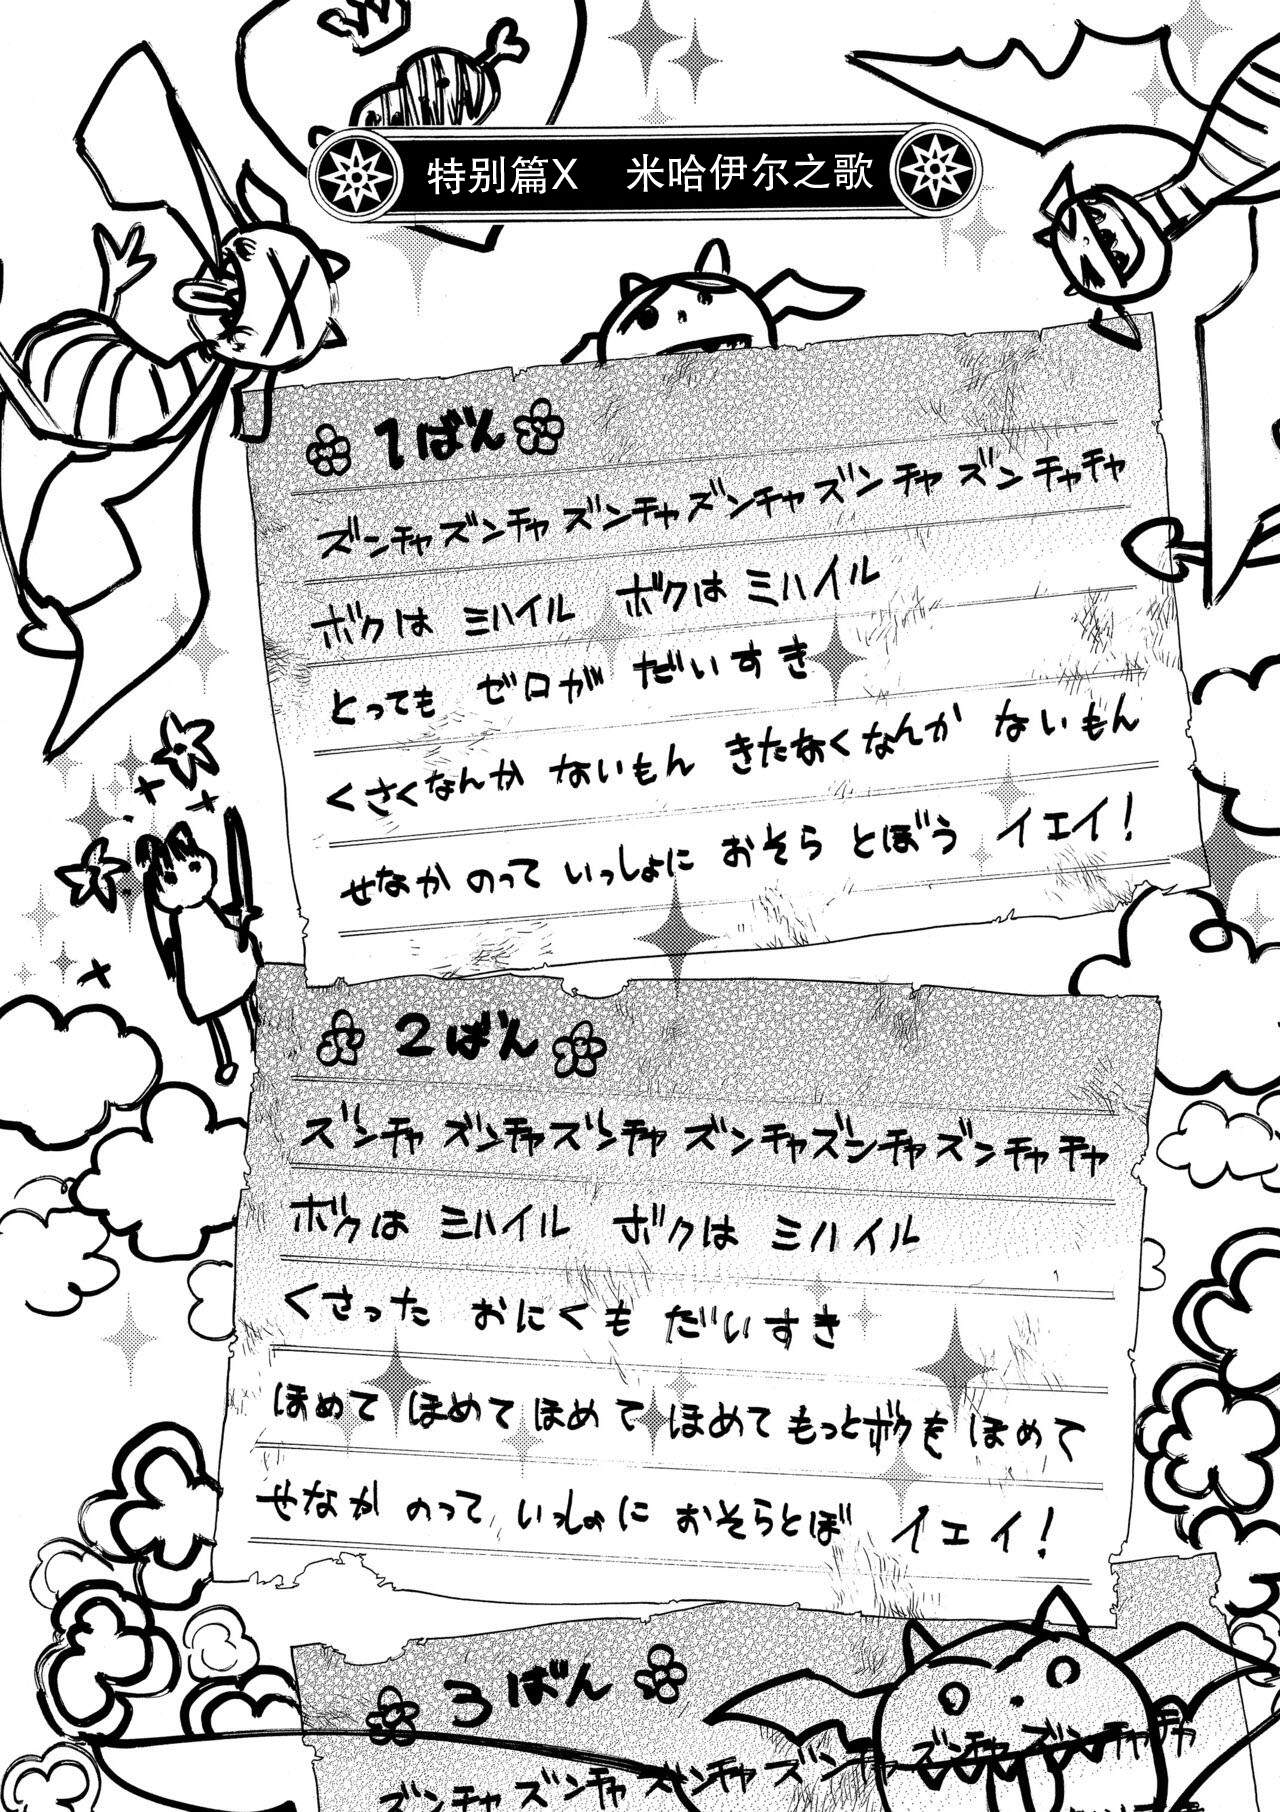 特别篇X 米哈伊尔之歌
1ばん
ズンチャズンチャ ズンチャズンチャズンチャ ズンチャチャ
ボクは ミハイル ボクは ミハイル
とっても ゼロが だいすき
くさくなんか ないもん きたなくなんか ないもん
せなか のって いっしょに おそら とぼう イエイ!
2ばん
ズンチャ ズンチャズンチャ ズンチャズンチャズンチャチャ
ボクは ミハイル ボクは ミハイル
くさった おにくも だいすき
ほめて ほめてほめて ほめて もっとボクを ほめて
せなか のって いっしょに おそらとぼ イエイ!
3ばん
ズンチャズンチャズンチャズンチャ ズンチャ ズンチャチャ